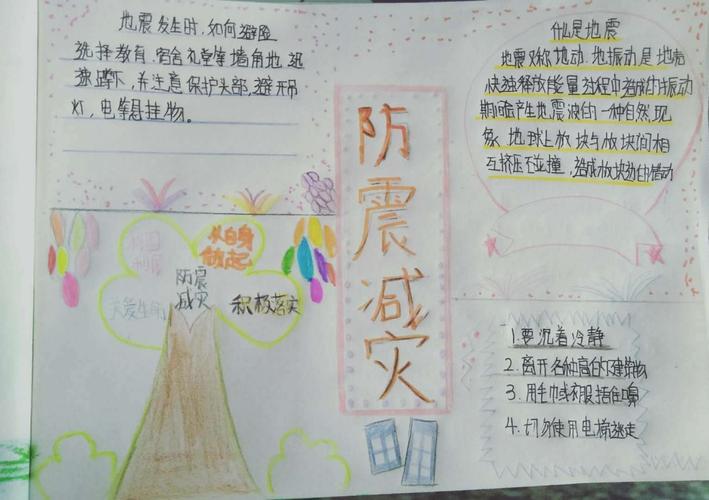 地震发生时,如何避险
选择教育.宿舍礼堂等墙角地.迅
速蹲下,并注意保护头部,避开吊
灯,电等悬挂物。
防震减灾
什么是地震
地震又称地动.地振动是地壳
快速释放能量过程中造成的振动
期间会产生地震波的一种自然现
象.地球上板块与板块间相
互挤压碰撞,造成板块
从自身
做起
防震
减灾
关爱生命
积极落实
1.要沉着冷静
2.离开各种高的建筑物
3.用毛巾或衣服捂住鼻
4.切勿使用电梯逃走